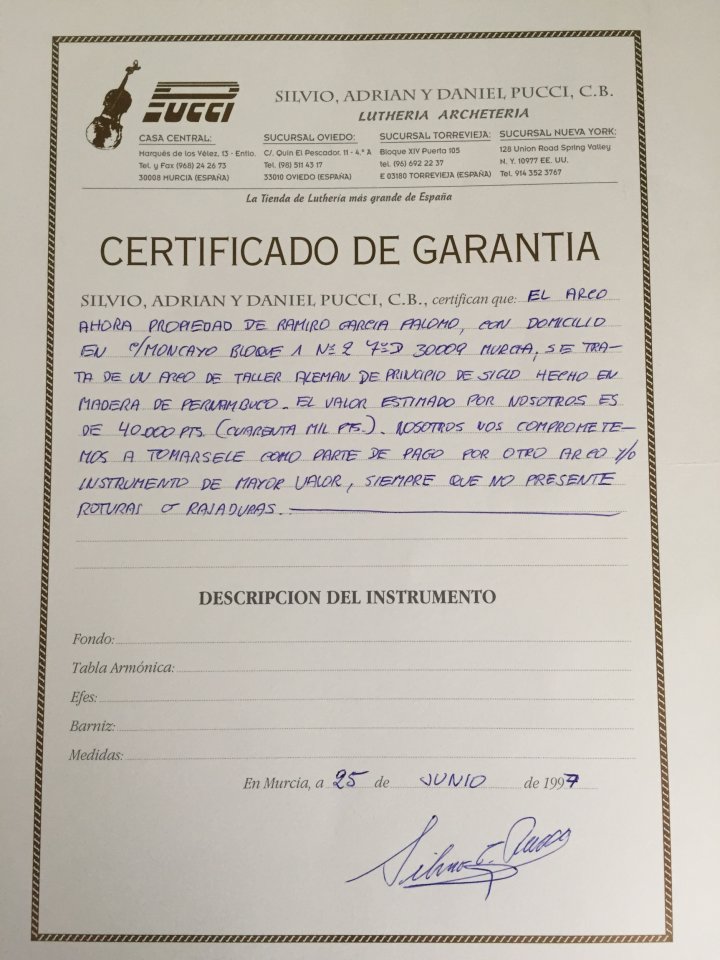 PUCCI
SILVIO, ADRIAN Y DANIEL PUCCI, C.B.
LUTHERIA ARCHETERIA
CASA CENTRAL:
Marqués de los Vélez, 13 - Entlo.
Tel. y Fax (968) 24 26 73
30008 MURCIA (ESPAÑA)
SUCURSAL OVIEDO:
C/. Quin El Pescador, 11 - 4.º A
Tel. (98) 511 43 17
33010 OVIEDO (ESPAÑA)
SUCURSAL TORREVIEJA:
Bloque XIV Puerta 105
tel. (96) 692 22 37
E 03180 TORREVIEJA (ESPAÑA)
SUCURSAL NUEVA YORK:
128 Union Road Spring Valley
N. Y. 10977 EE. UU.
Tel. 914 352 3767
La Tienda de Luthería más grande de España
CERTIFICADO DE GARANTIA
SILVIO, ADRIAN Y DANIEL PUCCI, C.B., certifican que: EL ARCO
AHORA PROPIEDAD DE RAMIRO GARCIA PALOMO, CON DOMICILIO
EN C/MONCAYO BLOQUE 1 Nº 2 7º D 30009 MURCIA, SE TRA-
TA DE UN ARCO DE TALLER ALEMAN DE PRINCIPIO DE SIGLO HECHO EN
MADERA DE PERNAMBUCO. EL VALOR ESTIMADO POR NOSOTROS ES
DE 40.000 PTS. (CUARENTA MIL PTS.). NOSOTROS NOS COMPROMETE-
MOS A TOMARSELE COMO PARTE DE PAGO POR OTRO ARCO Y/O
INSTRUMENTO DE MAYOR VALOR, SIEMPRE QUE NO PRESENTE
ROTURAS O RAJADURAS.
DESCRIPCION DEL INSTRUMENTO
Fondo:
Tabla Armónica:
Efes:
Barniz:
Medidas:
En Murcia, a 25 de JUNIO de 1997